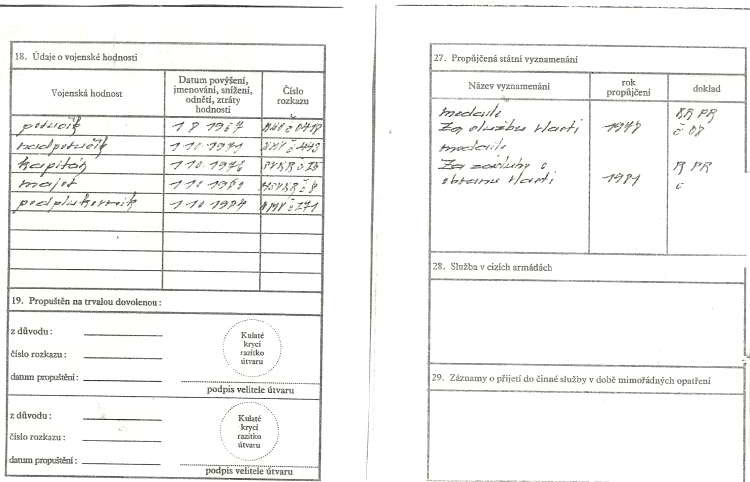 18. Údaje o vojenské hodnosti
Vojenská hodnost
Datum povýšení,
jmenování, snížení,
odnětí, ztráty
hodnosti
Číslo
rozkazu
poručík 1 8 1967
nadporučík 1 10 1971
kapitán 1 10 1976
major 1 10 1980
podplukovník 1 10 1984
19. Propuštěn na trvalou dovolenou:
z důvodu:
číslo rozkazu:
datum propuštění:
Kulaté
krycí
razítko
útvaru
podpis velitele útvaru
z důvodu:
číslo rozkazu:
datum propuštění:
Kulaté
krycí
razítko
útvaru
podpis velitele útvaru
27. Propůjčená státní vyznamenání
Název vyznamenání
rok
propůjčení
doklad
medaile
Za službu vlasti
medaile
Za zásluhy o
obranu vlasti 1981
28. Služba v cizích armádách
29. Záznamy o přijetí do činné služby v době mimořádných opatření